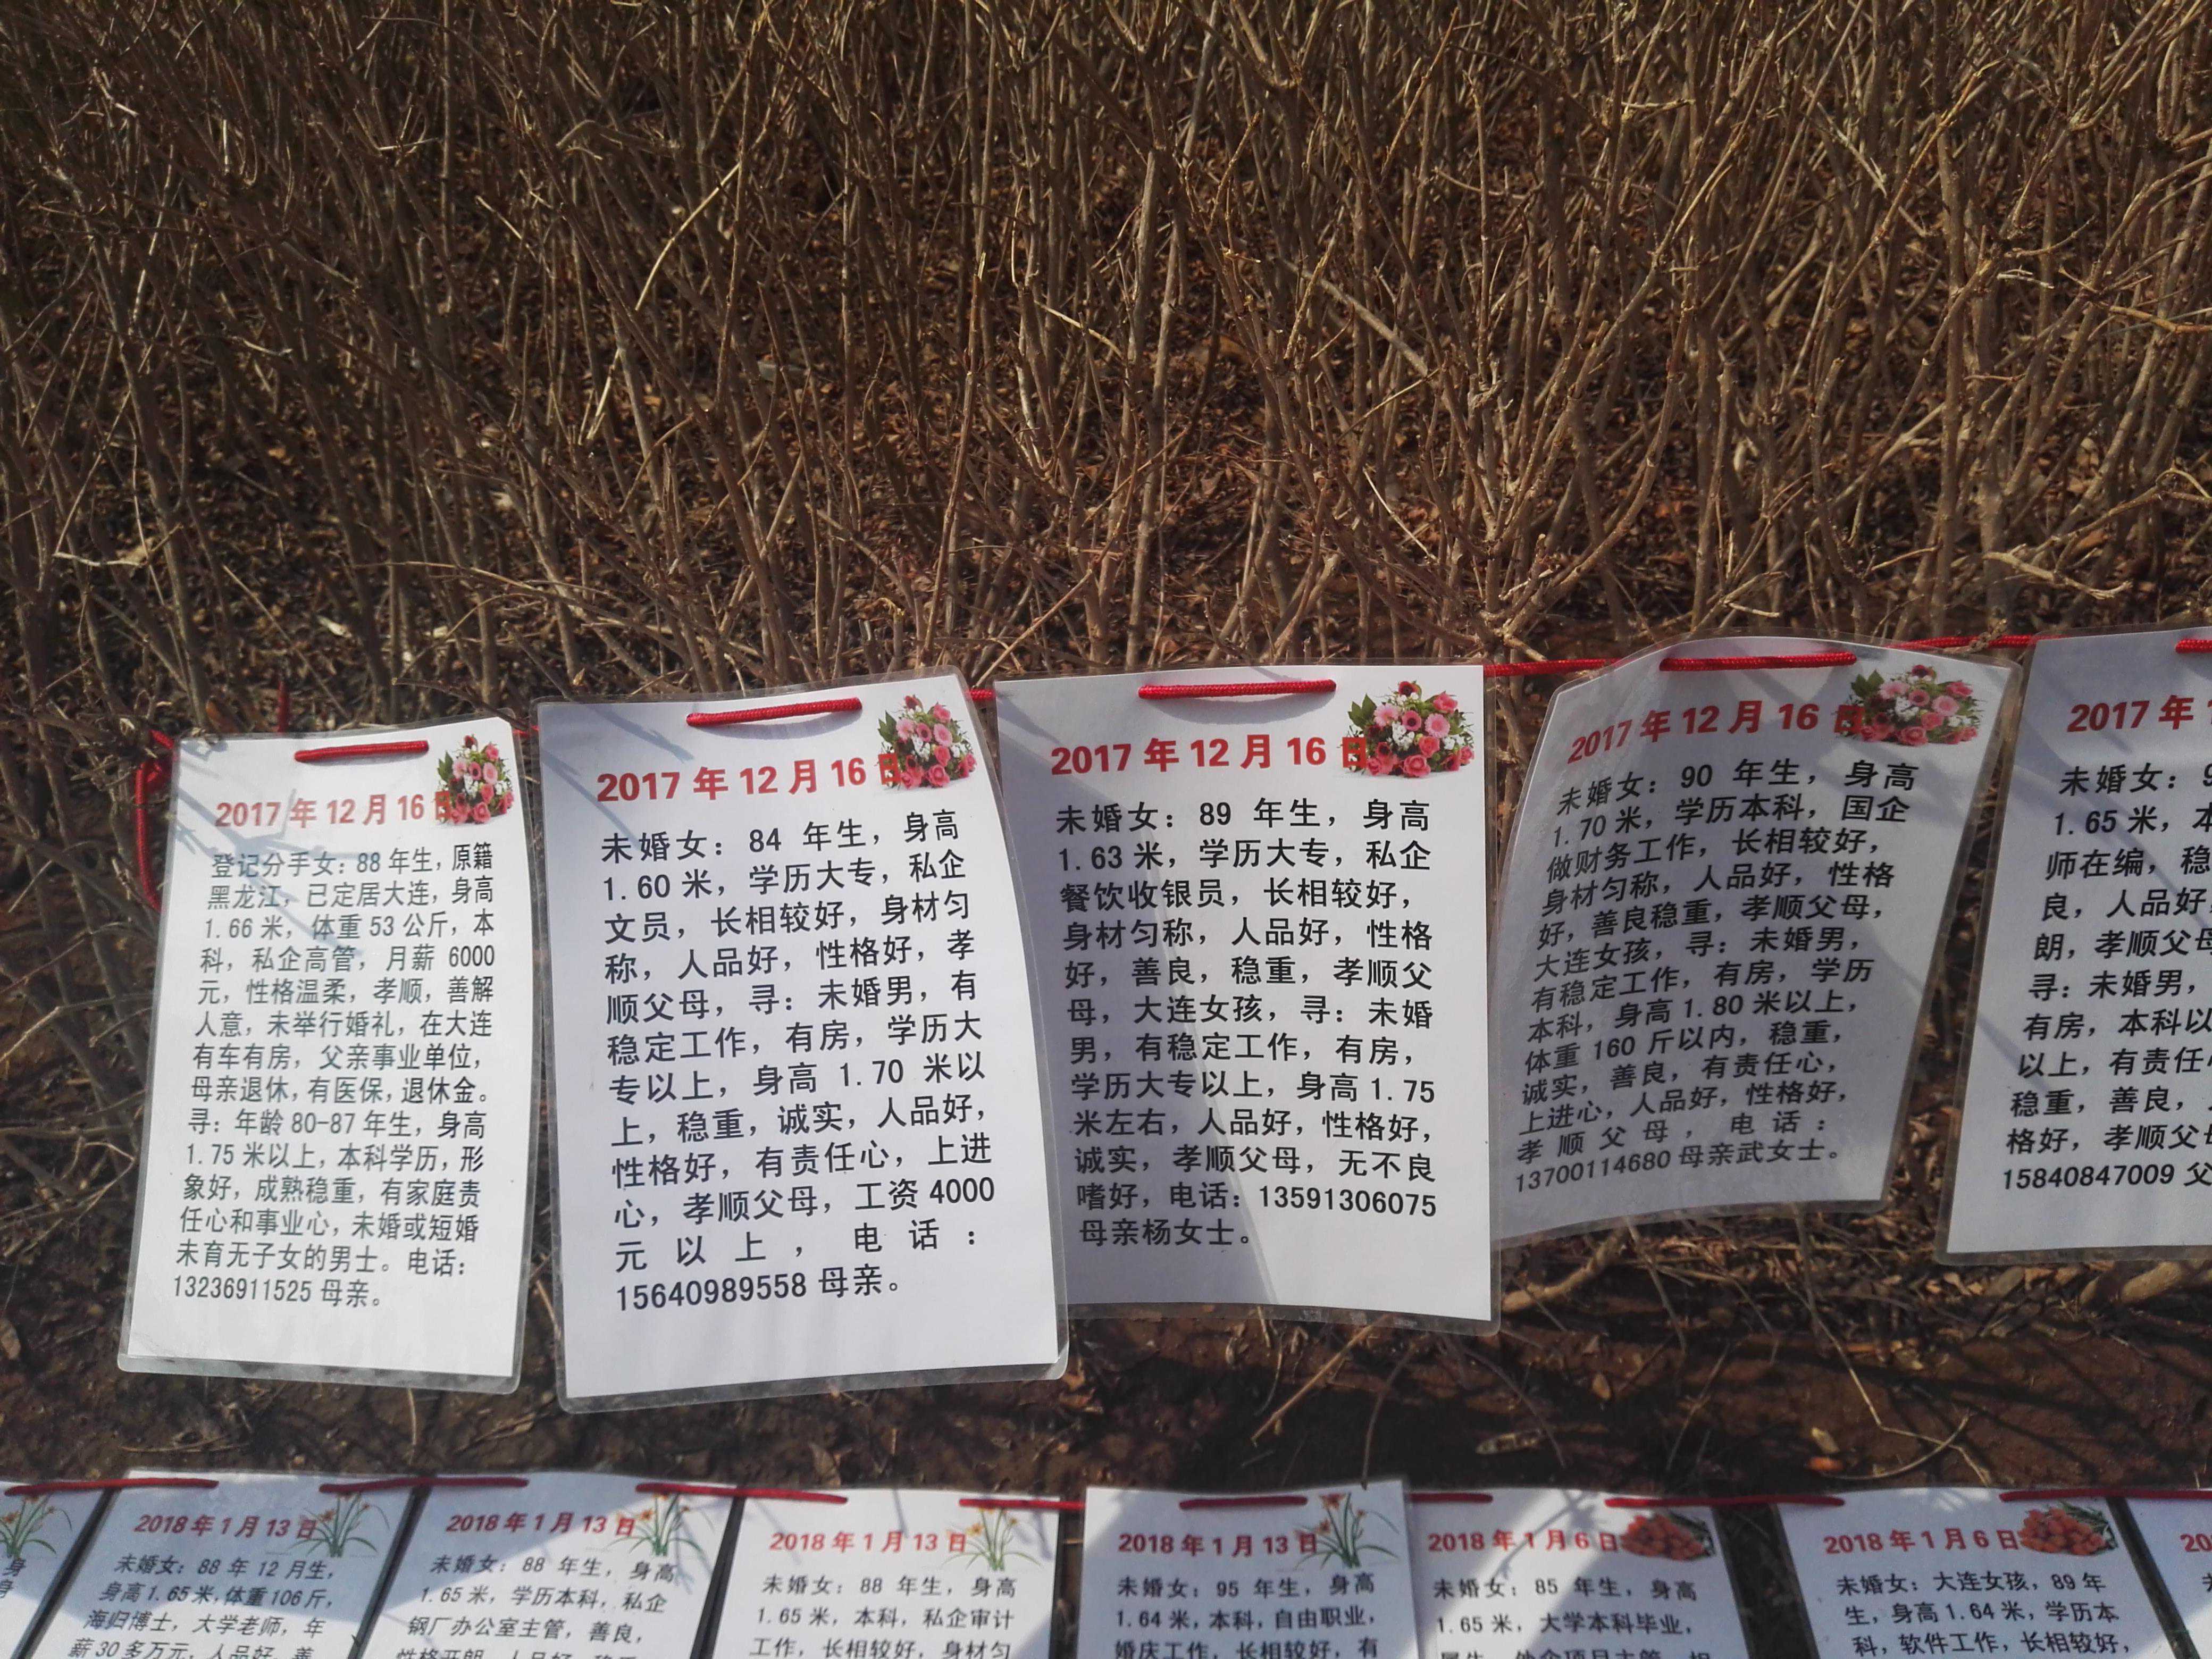 2017年12月16日
登记分手女：88年生，原籍
黑龙江，已定居大连，身高
1.66米，体重53公斤，本
科，私企高管，月薪6000
元，性格温柔，孝顺，善解
人意，未举行婚礼，在大连
有车有房，父亲事业单位，
母亲退休，有医保，退休金。
寻：年龄80-87年生，身高
1.75米以上，本科学历，形
象好，成熟稳重，有家庭责
任心和事业心，未婚或短婚
未育无子女的男士。电话：
13236911525母亲。
2017年12月16日
未婚女：84年生，身高
1.60米，学历大专，私企
文员，长相较好，身材匀
称，人品好，性格好，孝
顺父母，寻：未婚男，有
稳定工作，有房，学历大
专以上，身高1.70米以
上，稳重，诚实，人品好，
性格好，有责任心，上进
心，孝顺父母，工资4000
元以上，电话：
15640989558母亲。
2017年12月16日
未婚女：89年生，身高
1.63米，学历大专，私企
餐饮收银员，长相较好，
身材匀称，人品好，性格
好，善良，稳重，孝顺父
母，大连女孩，寻：未婚
男，有稳定工作，有房，
学历大专以上，身高1.75
米左右，人品好，性格好，
诚实，孝顺父母，无不良
嗜好，电话：13591306075
母亲杨女士。
2017年12月16日
未婚女：90年生，身高
1.70米，学历本科，国企
做财务工作，长相较好，
身材匀称，人品好，性格
好，善良稳重，孝顺父母，
大连女孩，寻：未婚男，
有稳定工作，有房，学历
本科，身高1.80米以上，
体重160斤以内，稳重，
诚实，善良，有责任心，
上进心，人品好，性格好，
孝顺父母，电话：
13700114680母亲武女士。
2017年
未婚女：9
1.65米，本
师在编，稳
良，人品好，
朗，孝顺父母
寻：未婚男，
有房，本科以
以上，有责任心
稳重，善良，
格好，孝顺父母
15840847009父
身
2018年1月13日
未婚女：88年12月生，
身高1.65米，体重106斤，
海归博士，大学老师，年
薪30多万元，人品好，善
2018年1月13日
未婚女：88年生，身高
1.65米，学历本科，私企
钢厂办公室主管，善良，
性格开朗，人品好，稳重
2018年1月13日
未婚女：88年生，身高
1.65米，本科，私企审计
工作，长相较好，身材匀
2018年1月13日
未婚女：95年生，身高
1.64米，本科，自由职业，
婚庆工作，长相较好，有
2018年1月6日
未婚女：85年生，身高
1.65米，大学本科毕业，
属牛，外企项目主管，相
2018年1月6日
未婚女：大连女孩，89年
生，身高1.64米，学历本
科，软件工作，长相较好，
20